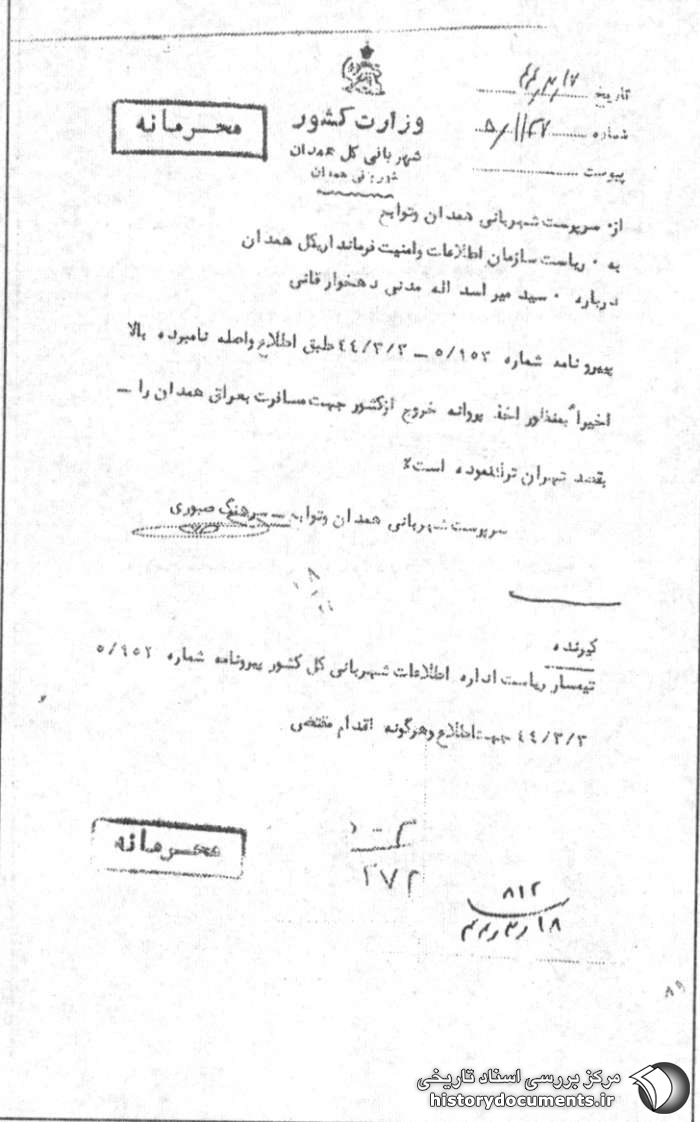 تاریخ ۴۴/۳/۱۷
محرمانه
وزارت کشور
شماره ۵/۱۱۲۷
شهربانی کل همدان
پیوست
شهربانی همدان
از. سرپرست شهربانی همدان وتوابع
به. ریاست سازمان اطلاعات وامنیت فرمانداریکل همدان
درباره. سید میر اسد اله مدنی دهخوارقانی
پیرو نامه شماره ۵/۹۵۲ – ۴۴/۳/۳ طبق اطلاع واصله نامبرده بالا
اخیراً بمنظور اخذ پروانه خروج ازکشور جهت مسافرت بعراق همدان را –
بقصد تهران ترکنموده است٪
سرپرست شهربانی همدان وتوابع – سرهنگ صبوری
گیرنده
تیمسار ریاست اداره اطلاعات شهربانی کل کشور پیرونامه شماره ۵/۹۵۲
۴۴/۳/۳ جهت اطلاع وهرگونه اقدام مقتضی
محرمانه
۲۷۲
۸۱۲
۴۴/۳/۱۸
۸۹
مرکز بررسی اسناد تاریخی
historydocuments.ir